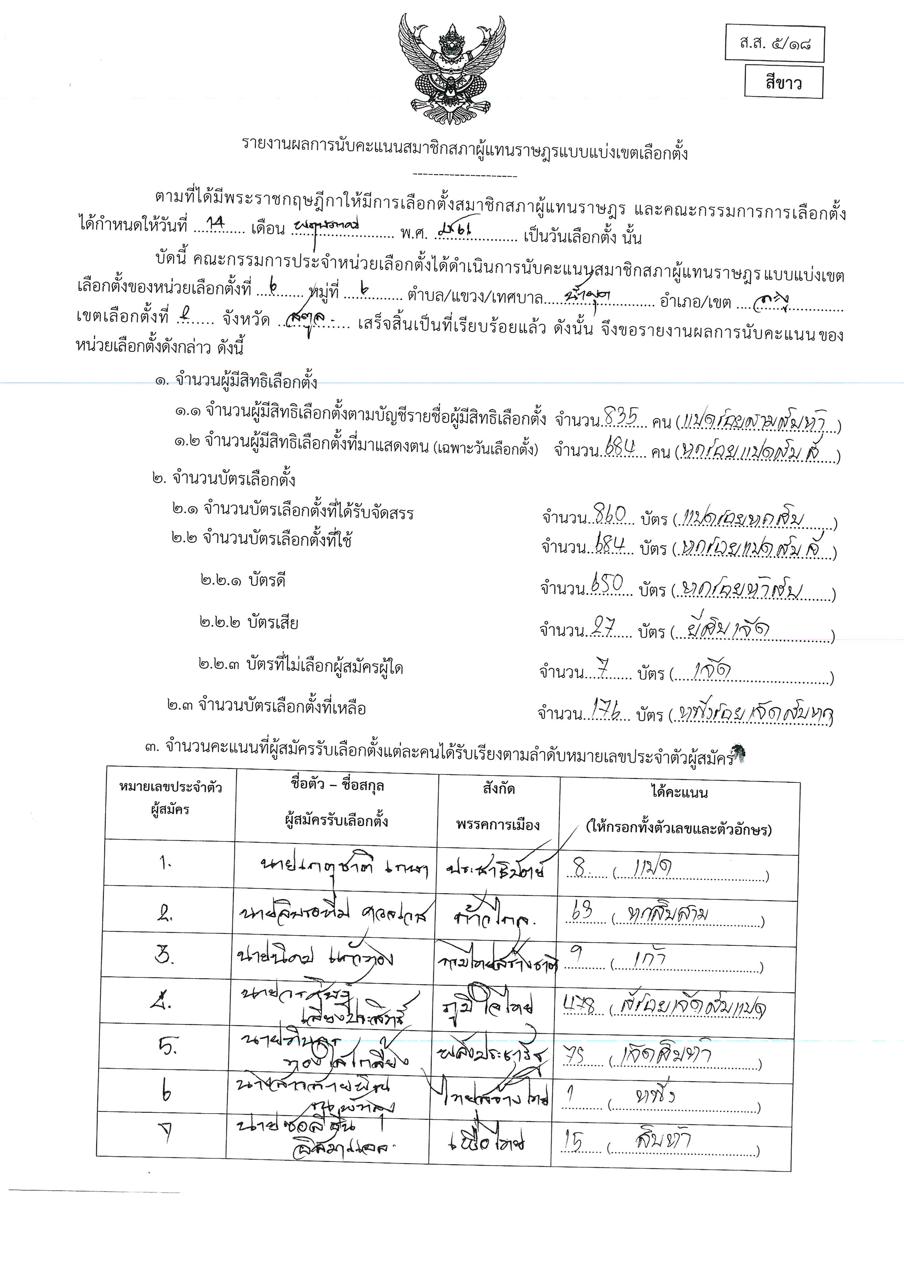 ส.ส. ๕/๑๘
สีขาว
รายงานผลการนับคะแนนสมาชิกสภาผู้แทนราษฎรแบบแบ่งเขตเลือกตั้ง
ตามที่ได้มีพระราชกฤษฎีกาให้มีการเลือกตั้งสมาชิกสภาผู้แทนราษฎร และคณะกรรมการการเลือกตั้ง
ได้กำหนดให้วันที่ 14 เดือน พฤษภาคม พ.ศ. ๒๕๖๖ เป็นวันเลือกตั้ง นั้น
บัดนี้ คณะกรรมการประจำหน่วยเลือกตั้งได้ดำเนินการนับคะแนนสมาชิกสภาผู้แทนราษฎรแบบแบ่งเขต
เลือกตั้งของหน่วยเลือกตั้งที่ ๖ หมู่ที่ ๖ ตำบล/แขวง/เทศบาล อำเภอ/เขต
เขตเลือกตั้งที่ ๒ จังหวัด สตูล เสร็จสิ้นเป็นที่เรียบร้อยแล้ว ดังนั้น จึงขอรายงานผลการนับคะแนนของ
หน่วยเลือกตั้งดังกล่าว ดังนี้
๑. จำนวนผู้มีสิทธิเลือกตั้ง
๑.๑ จำนวนผู้มีสิทธิเลือกตั้งตามบัญชีรายชื่อผู้มีสิทธิเลือกตั้ง จำนวน 835 คน (แปดร้อยสามสิบห้า)
๑.๒ จำนวนผู้มีสิทธิเลือกตั้งที่มาแสดงตน (เฉพาะวันเลือกตั้ง) จำนวน 684 คน (หกร้อยแปดสิบสี่)
๒. จำนวนบัตรเลือกตั้ง
๒.๑ จำนวนบัตรเลือกตั้งที่ได้รับจัดสรร จำนวน 860 บัตร (แปดร้อยหกสิบ)
๒.๒ จำนวนบัตรเลือกตั้งที่ใช้ จำนวน 684 บัตร (หกร้อยแปดสิบสี่)
๒.๒.๑ บัตรดี จำนวน 650 บัตร (หกร้อยห้าสิบ)
๒.๒.๒ บัตรเสีย จำนวน 27 บัตร (ยี่สิบเจ็ด)
๒.๒.๓ บัตรที่ไม่เลือกผู้สมัครผู้ใด จำนวน 7 บัตร (เจ็ด)
๒.๓ จำนวนบัตรเลือกตั้งที่เหลือ จำนวน 176 บัตร (หนึ่งร้อยเจ็ดสิบหก
๓. จำนวนคะแนนที่ผู้สมัครรับเลือกตั้งแต่ละคนได้รับเรียงตามลำดับหมายเลขประจำตัวผู้สมัคร
หมายเลขประจำตัว ชื่อตัว – ชื่อสกุล สังกัด ได้คะแนน
ผู้สมัคร ผู้สมัครรับเลือกตั้ง พรรคการเมือง (ให้กรอกทั้งตัวเลขและตัวอักษร)
1. ประชาธิปัตย์ 8 (แปด)
2. ก้าวไกล 63 (หกสิบสาม)
3. รวมไทยสร้างชาติ 9 (เก้า)
4. ภูมิใจไทย 478 (สี่ร้อยเจ็ดสิบแปด)
5. พลังประชารัฐ 75 (เจ็ดสิบห้า)
6 ไทยสร้างไทย 1 (หนึ่ง)
7 เพื่อไทย 15 (สิบห้า)